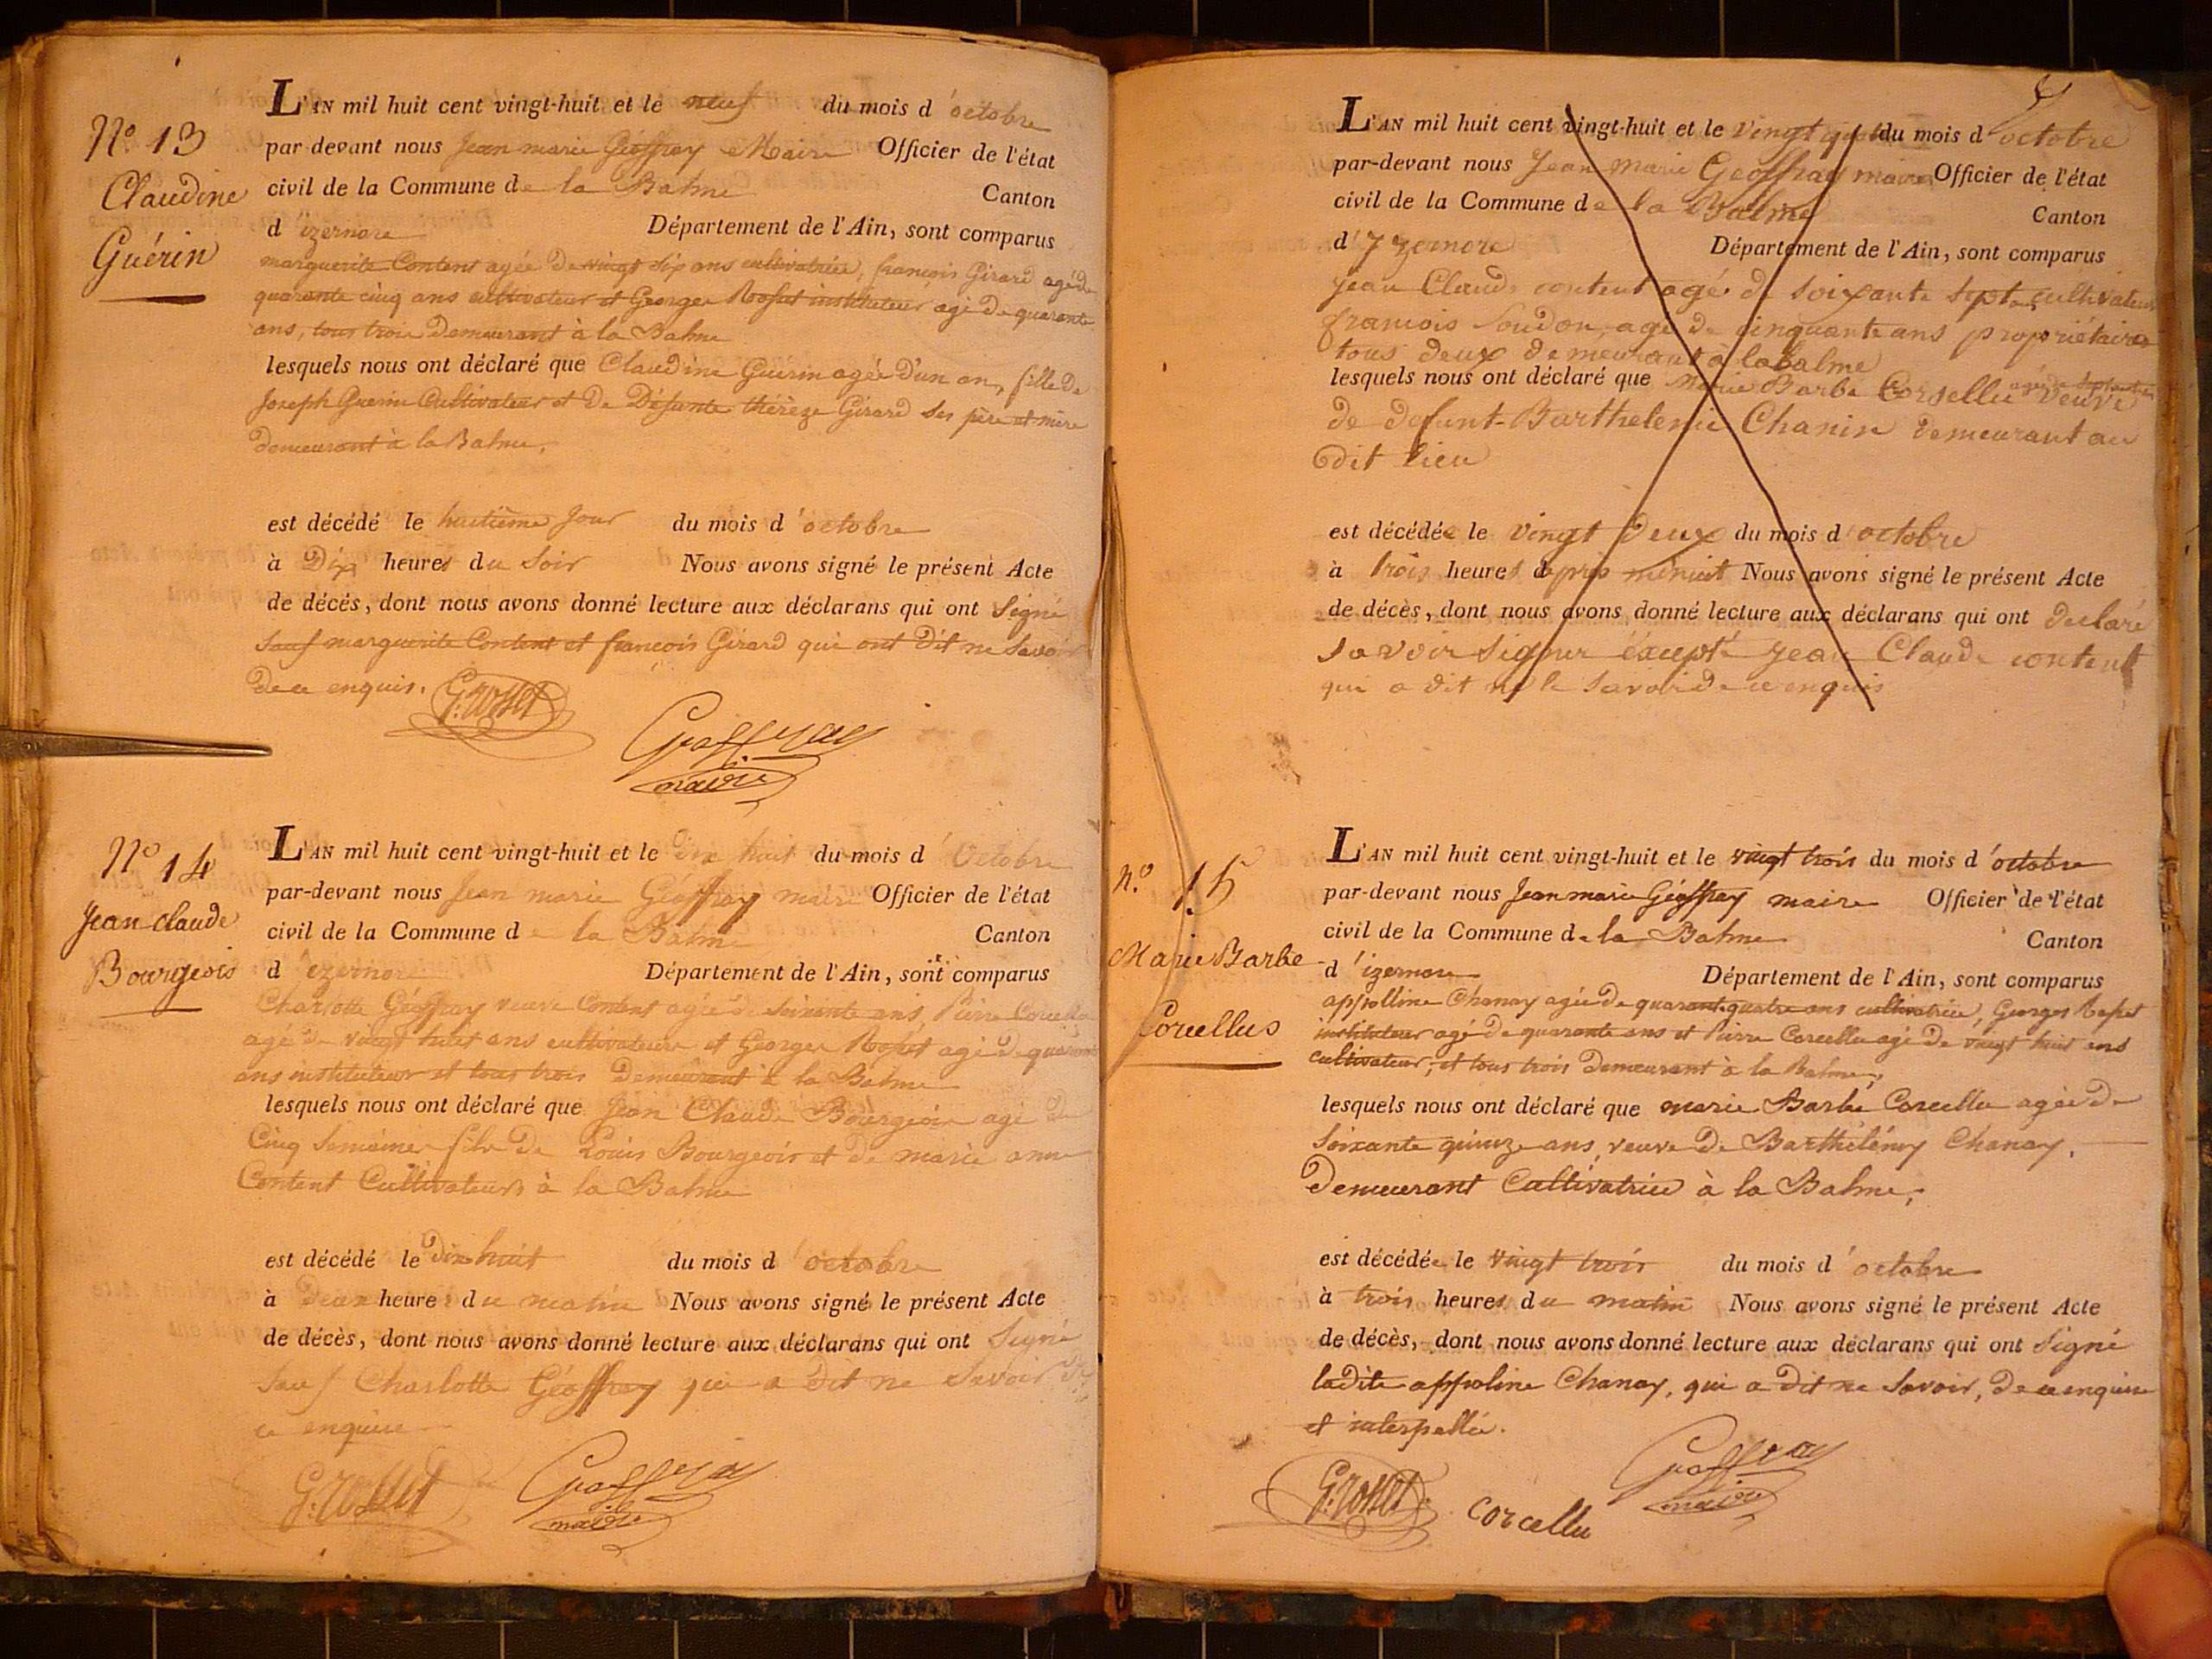 N.º 13
Claudine
Guérin
L'AN mil huit cent vingt-huit et le neuf du mois d'octobre
par-devant nous Jean marie Géoffray Maire Officier de l'état
civil de la Commune de la Balme Canton
d'izernore Département de l'Ain, sont comparus
marguerite Content agée de vingt six ans cultivatrice, françois Girard agé de
quarante cinq ans cultivateur et George Rosset instituteur agé de quarante
ans, tous trois Demeurant à la Balme
lesquels nous ont déclaré que Claudine Guérin agée d'un an, fille de
Joseph Guerin Cultivateur et De Défunte thérèze Girard ses père et mère
demeurant à la Balme,
est décédé le huitième jour du mois d'octobre
à Dix heures du Soir Nous avons signé le présent Acte
de décès, dont nous avons donné lecture aux déclarans qui ont Signé
Sauf marguerite Content et françois Girard qui ont Dit ne Savoir
de ce enquis.
G. Rosset
Geoffray
maire
N.º 14
Jean claude
Bourgeois
L'AN mil huit cent vingt-huit et le dix huit du mois d'Octobre
par-devant nous Jean marie Géoffray maire Officier de l'état
civil de la Commune de la Balme Canton
d'ezernore Département de l'Ain, sont comparus
Charlotte Géoffray veuve Content agée de Soixante ans, Pierre Corcellu
agé de vingt huit ans cultivateur et George Rosset agé de quarante
ans instituteur et tous trois Demeurant à la Balme
lesquels nous ont déclaré que Jean Claude Bourgeois agé de
Cinq Semaines fils de Louis Bourgeois et de marie anne
Content Cultivateurs à la Balme
est décédé le Dix huit du mois d'octobre
à Deux heures du matin Nous avons signé le présent Acte
de décès, dont nous avons donné lecture aux déclarans qui ont Signé
Sauf Charlotte Géoffray qui a Dit ne Savoir de
ce enquise
G. Rosset
Geoffray
maire
L'AN mil huit cent vingt-huit et le vingt du mois d'octobre
par-devant nous Jean Marie Geoffray maire Officier de l'état
civil de la Commune de la Balme Canton
d'Yzernore Département de l'Ain, sont comparus
jean Claude content agé de soixante sept ans cultivateur
francois Soudon agé de cinquante ans propriétaire
tous deux demeurant à labalme
lesquels nous ont déclaré que Marie Barbe Corsellu veuve
de defunt Barthelemie Chanin demeurant au
dit lieu
est décédée le vingt deux du mois d'octobre
à trois heures apris minuit Nous avons signé le présent Acte
de décès, dont nous avons donné lecture aux déclarans qui ont declaré
savoir signer éxcepté jean Claude content
qui a dit ne le savoir de ce enquis
n.º 15
Marie Barbe
Corcellus
L'AN mil huit cent vingt-huit et le vingt trois du mois d'octobre
par-devant nous Jean marie Géoffray maire Officier de l'état
civil de la Commune de la Balme Canton
d'izernore Département de l'Ain, sont comparus
appolline Chanay agée de quarante quatre ans cultivatrice, Georges Rosset
instituteur agé de quarante ans et Pierre Corcellu agé de vingt huit ans
cultivateur, et tous trois Demeurant à la Balme,
lesquels nous ont déclaré que marie Barbe Corcellu agée de
Soixante quinze ans, veuve de Barthélémy Chanay,
Demeurant Cultivatrice à la Balme,
est décédée le vingt trois du mois d'octobre
à trois heures du matin Nous avons signé le présent Acte
de décès, dont nous avons donné lecture aux déclarans qui ont Signé
ladite appoline Chanay, qui a dit ne Savoir, De ce enquise
et interpellée.
G. Rosset
Corcellu
Geoffray
maire